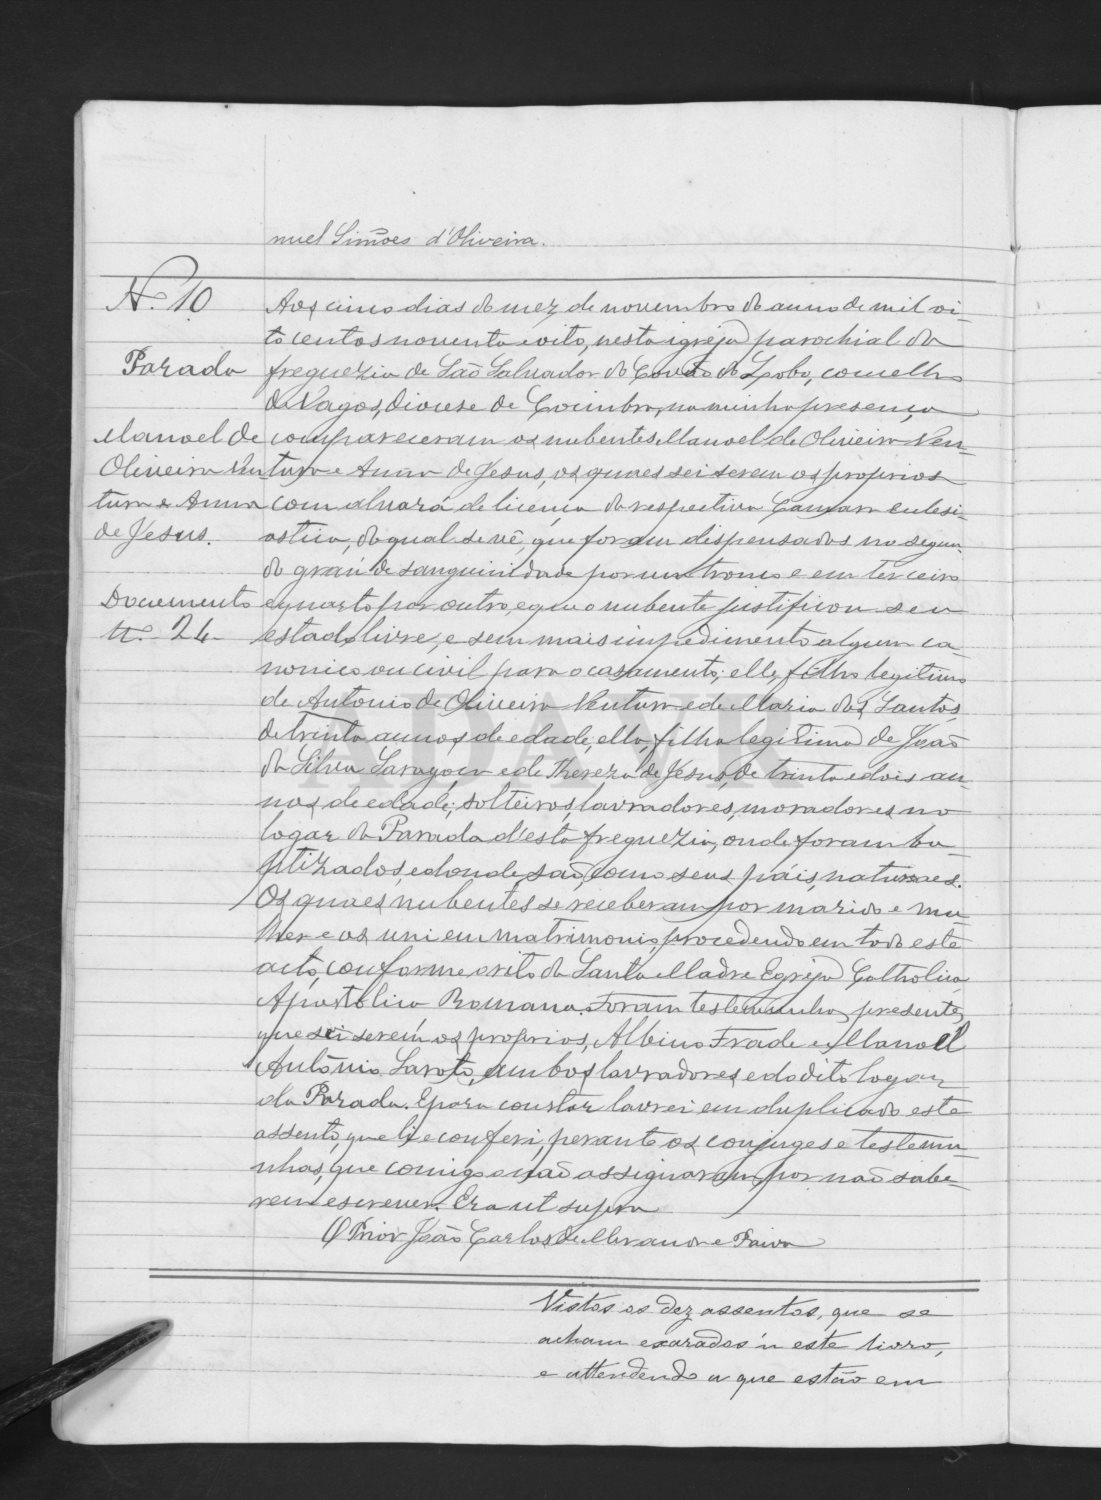 nuel Simões d'Oliveira.
N.º 10
Parada
Manoel de
Oliveira Ven
tura e Anna
de Jesus.
Documento
N.º 24
Aos cinco dias do mez de novembro do anno de mil oi-
to centos noventa e oito, nesta igreja parochial da
freguezia de São Salvador do Covão do Lobo, concelho
de Vagos, diocese de Coimbra, na minha presença
compareceram os nubentes Manoel de Oliveira Ven-
tura e Anna de Jesus, os quaes sei serem os proprios
com alvará de licença da respectiva Camara ecclesi-
astica, do qual se vê, que foram dispensados no segun-
do grau de sanguinidade por um tronco e em terceiro
e quarto por outro, e que o nubente justificou seu
estado livre, e sem mais impedimento algum ca-
nonico ou civil para o casamento; elle, filho legitimo
de Antonio de Oliveira Ventura e de Maria dos Santos,
de trinta annos de edade, ella, filha legitima de João
da Silva Saragoça e de Thereza de Jesus, de trinta e dois an-
nos de edade; solteiros, lavradores, moradores no
logar da Parada d'esta freguezia, onde foram ba-
ptizados, e donde são, como seus páis, naturaes.
Os quaes nubentes se receberam por marido e mu-
lher e os uni em matrimonio, procedendo em todo este
acto, conforme o rito da Santa Madre Egreja Catholica
Apostolica Romana. Foram testemunhas presentes,
que sei serem os proprios, Albino Frade e Manoel
Antonio Saroto, ambos lavradores e do dito logar
da Parada. E para constar lavrei em duplicado este
assento, que li e conferi, perante os conjuges e testemu-
nhas, que comigo não assignaram por não sabe-
rem escrever. Era ut supra
O Prior João Carlos de Miranda e Paiva
Vistos os dez assentos, que se
acham exarados n'este livro,
e attendendo a que estão em
ADAVR